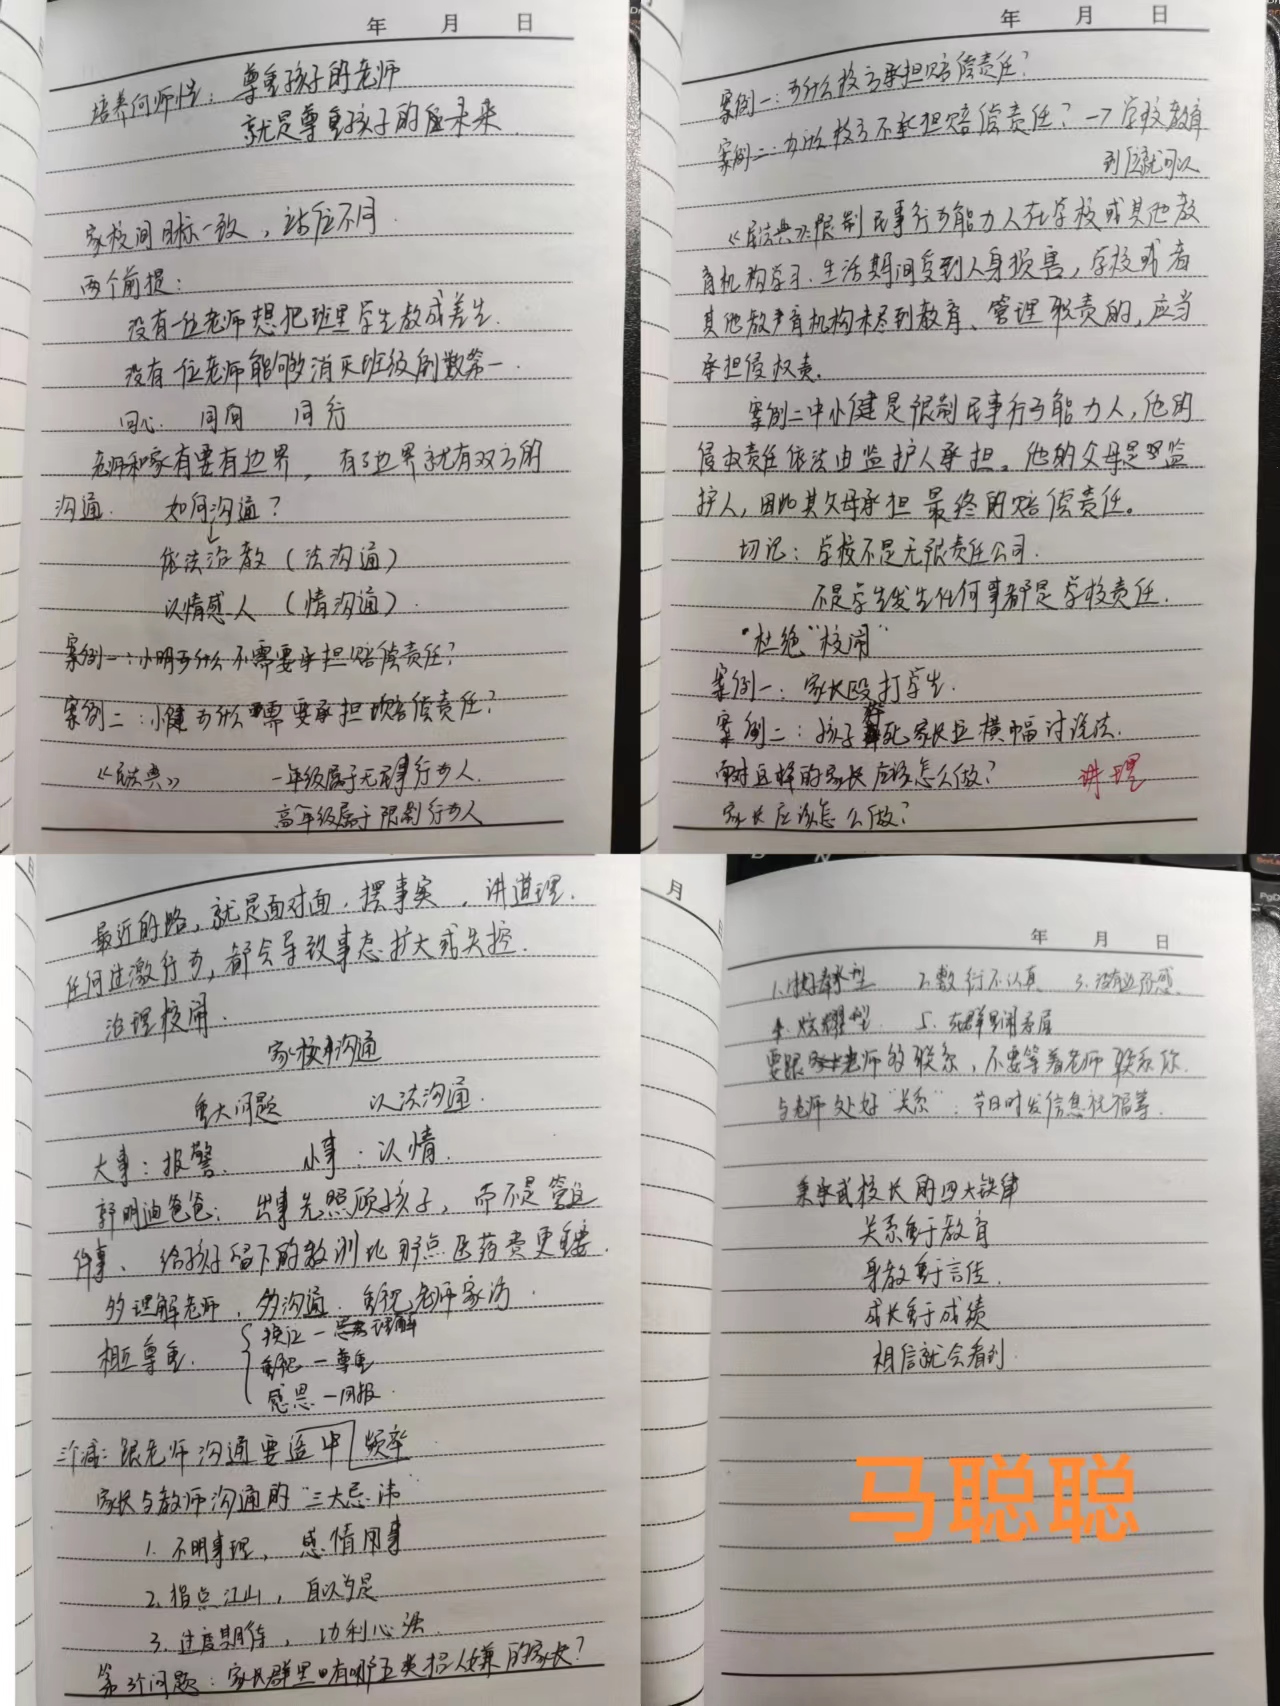 年 月 日
培养向师性：尊重孩子的老师
就是尊重孩子的未来
家校间目标一致，站位不同.
两个前提：
没有一位老师想把班里学生教成差生.
没有一位老师能够消灭班级倒数第一.
同心 同向 同行
老师和家有要有边界，有了边界就有双方的
沟通. 如何沟通？
依法治教（法沟通）
以情感人（情沟通）.
案例一：小明为什么不需要承担赔偿责任？
案例二：小健为什么需要承担赔偿责任？
《民法典》 一年级属于无民事行为人.
高年级属于限制行为人
年 月 日
案例一：为什么校方承担赔偿责任？
案例二：为什么校方不承担赔偿责任？→学校教育
到位就可以
《民法典》：限制民事行为能力人在学校或其他教
育机构学习.生活期间受到人身损害，学校或者
其他教育机构未尽到教育、管理职责的，应当
承担侵权责.
案例二中小健是限制民事行为能力人，他的
侵权责任依法由监护人承担。他的父母是监
护人，因此其父母承担最终的赔偿责任。
切记：学校不是无限责任公司.
不是学生发生任何事都是学校责任.
·杜绝“校闹”
案例一：家长殴打学生.
案例二：孩子猝死家长拉横幅讨说法.
面对这样的家长应该怎么做？ 讲理
家长应该怎么做？
最近的路，就是面对面，摆事实，讲道理.
任何过激行为，都会导致事态扩大或失控.
治理校闹.
家校沟通
重大问题 以法沟通.
大事：报警. 小事：以情.
郭明迪爸爸：出事先照顾孩子，而不是管这
件事、给孩子留下的教训比那点医药费更重要.
多理解老师，多沟通.重视老师家访.
相互尊重. 换位—理解
重视—尊重
感恩—回报.
三个减：跟老师沟通要适中 频率
家长与教师沟通的“三大忌讳”
1. 不明事理，感情用事
2. 指点江山，自以为是
3. 过度期待，功利心强.
第3个问题：家长群里有哪五类招人嫌的家长？
月
年 月 日
2. 敷衍不认真 3. 没有边界感.
4. 炫耀型. 5. 在群里闹矛盾
要跟老师多联系，不要等着老师联系你.
与老师处好“关系”：节日时发信息祝福等.
秉承武校长的四大铁律
关系重于教育
身教重于言传.
成长重于成绩
相信就会看到.
马聪聪